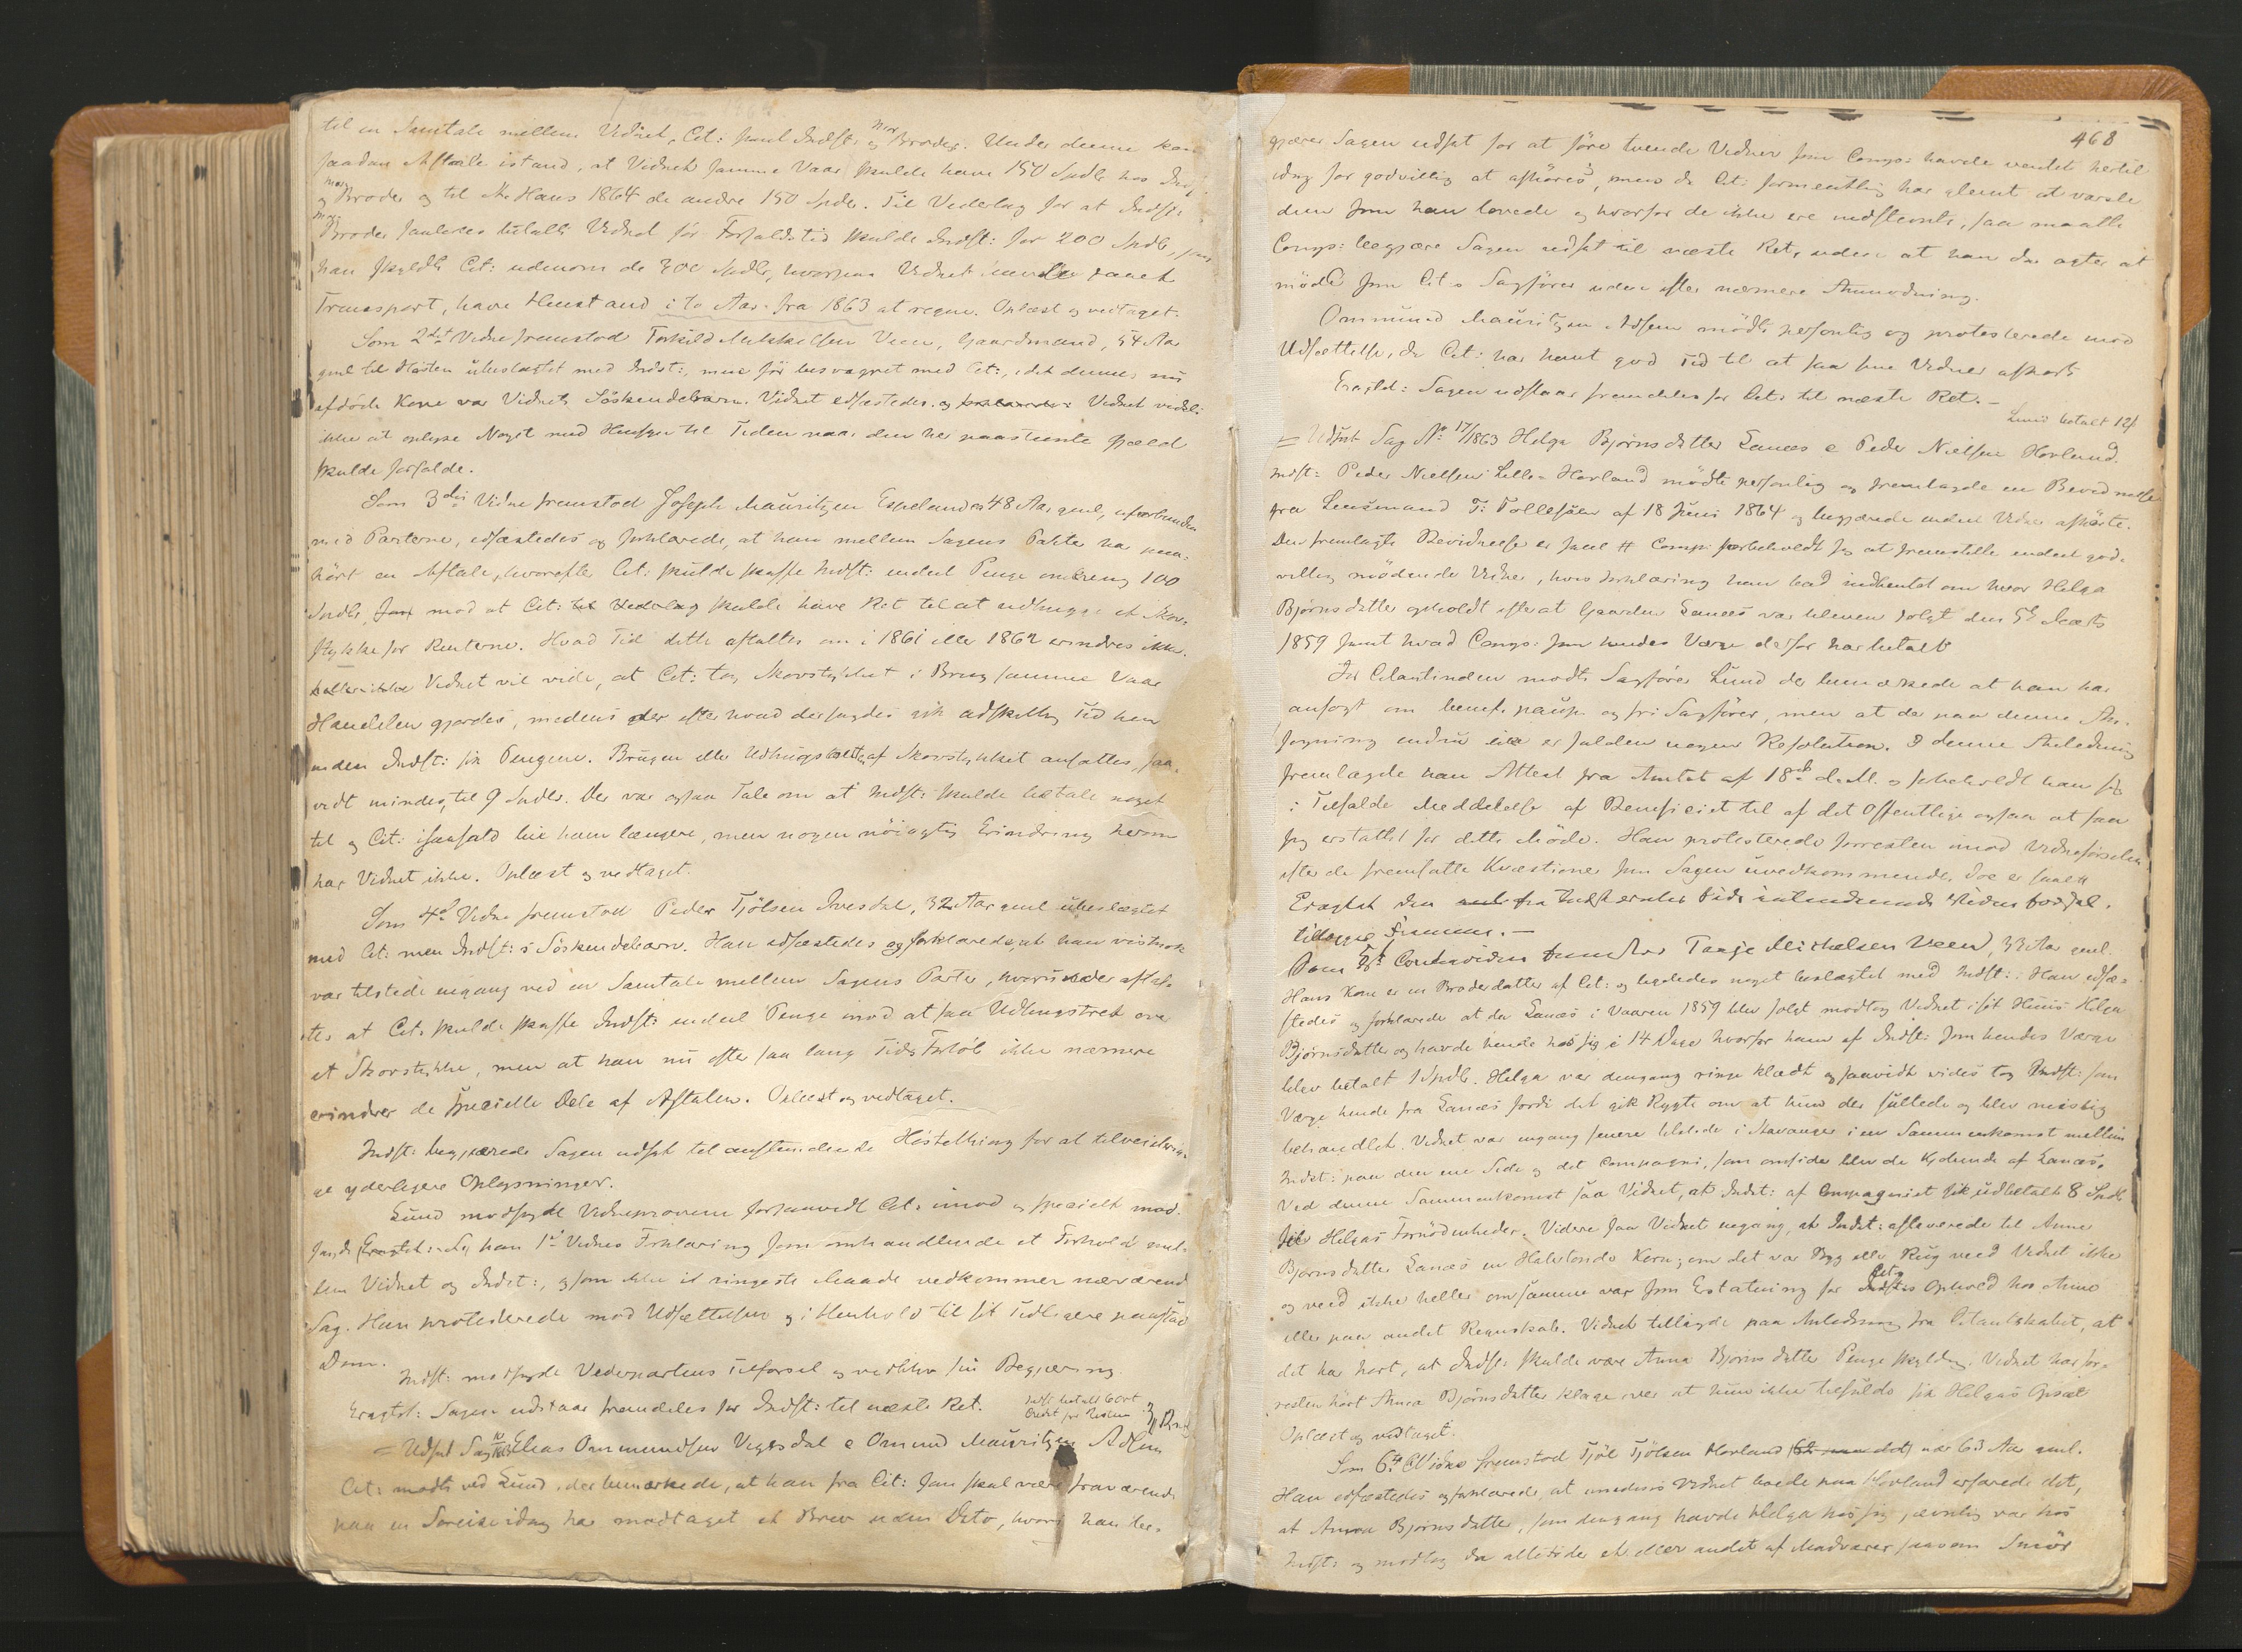 til en Samtale mellem Vidnet, Cit: samt Indst: og Broder. Under denne kom
saadan Aftale istand, at Vidnet samme Vaar skulde have 150 Spdlr hos Indst:
og Broder og til St. Hans 1864 de andre 150 Spdlr. Til Vederlag for at Indst:
Broder saaledes betalte Vidnet før Forfaldstid skulde Indst: for 200 Spdlr, som
han skyldte Cit: udenom de 300 Spdlr, hvorpaa Vidnet havde faaet
Transport, have Henstand i to Aar fra 1863 at regne. Oplæst og vedtaget.
Som 2det Vidne fremstod Torkild Veen, Gaardmand, 54 Aar
gml til Høsten ubeslægtet med Indst:, men før besvogret med Cit:, idet dennes nu
afdøde Kone var Vidnets Søskendebarn. Vidnet edfæstedes og Vidnet vidste
ikke at oplyse Noget med Hensyn til Tiden naar den her paastevnte Gjæld
skulde forfalde.
Som 3die Vidne fremstod Joseph Mauritzen Espeland 48 Aar gml, uforbunden
med Parterne, edfæstedes og forklarede, at han mellem Sagens Parter har paa-
hørt en Aftale, hvorefter Cit: skulde skaffe Indst: endeel Penge omkring 100
Spdlr, mod at Cit: skulde have Ret til at udhugge et Skov-
stykke for Renterne. Hvad Tid dette aftaltes om i 1861 eller 1862 erindres ikke.
Vidnet vil vide, at Cit: tog Skovstykket i Brug samme Vaar
Handelen gjordes, medens der efter hvad der sagdes gik adskillig Tid hen
inden Indst: fik Pengene. Brugen eller Udhugsten af Skovstykket ansattes, saa-
vidt mindes, til 9 Spdlr. Der var ogsaa Tale om at Indst: skulde betale noget
til og Cit: isaafald bie ham længere, men nogen nøiagtig Erindring herom
har Vidnet ikke. Oplæst og vedtaget.
Som 4de Vidne fremstod Peder Tjølsen Ivesdal, 32 Aar gml ubeslægtet
med Cit: men Indst:s Søskendebarn. Han edfæstedes og forklarede, at han vistnok
var tilstede engang ved en Samtale mellem Sagens Parter, hvorunder aftal-
tes at Cit: skulde skaffe Indst: endeel Penge mod at faa Udhugstret over
et Skovstykke, men at han nu efter saa lang Tids Forløb ikke nærmere
erindrer de specielle Dele af Aftalen. Oplæst og vedtaget.
Indst: begjærede Sagen udsat til anstundende Høstething for at tilveiebrin-
ge yderligere Oplysninger.
Lund modsagde Vidneprovene forsaavidt Cit: imod og specielt mod-
sagde han 1ste Vidnes Forklaring som omhandlende et Forhold mel-
lem Vidnet og Indst:, og som ikke i ringeste Maade vedkommer nærværende
Sag. Han protesterede mod Udsættelsen og i Henhold til sit tidligere paastod
Dom.
Indst: modsagde Vederpartens Tilførsel og vedblev sin Begjæring
Eragtet: Sagen udstaar fremdeles for Indst: til næste Ret.
= Udsat Sag Elias Ommundsen Vigesdal c Omund Mauritzen
Cit: mødte ved Lund, der bemærkede, at han fra Cit: som skal være fraværende
paa en Søreise idag har modtaget et Brev uden Dato, hvori han be-
468
gjærer Sagen udsat for at føre tvende Vidner som Comp: havde ventet hertil
idag for godvillig at afhøres, men da Cit: formentlig har glemt at varsle
dem som han lovede og hvorfor de ikke ere indstevnte, saa maatte
Comp: begjære Sagen udsat til næste Ret, uden at han da agter at
møde som Cit:s Sagfører uden efter nærmere Anmodning.
Ommund Mauritzen mødte personlig og protesterede mod
Udsættelse, da Cit: har havt god Tid til at faa sine Vidner afhørt
Eragtet: Sagen udstaar fremdeles for Cit: til næste Ret. -
Lund betalt 12ß
= Udsat Sag No 17/1863 Helga Bjørnsdatter Lanæs c Peder Nielsen Hovland.
Indst: Peder Nielsen Lille-Hovland mødte personlig og fremlagde en Bevidnelse
fra Lensmand T. Tollefsen af 18 Juni 1864 og begjærede endeel Vidner afhørte.
Den fremlagte Bevidnelse er saal # Comp: forbeholdt sig at fremstille endeel god-
villig mødende Vidner, hvis Forklaring han bad indhentet om hvor Helga
Bjørnsdatter opholdt efterat Gaarden Lanæs var bleven solgt den 5te Marts
1859 samt hvad Comp: som hendes Værge derfor har betalt
For Citantinden mødte Sagfører Lund der bemærkede at han har
ansøgt om benef. paup. og fri Sagfører, men at der paa denne An-
søgning endnu ikke er falden nogen Resolution. I denne Anledning
fremlagde han Attest fra Amtet af 18de d. M. og forbeholdt han sig
i Tilfælde Meddelelse af Beneficiet til af det Offentlige ogsaa at faa
sig erstattet for dette Møde. Han protesterede forresten imod Vidneførselen
efter de fremsatte Kvæstioner som Sagen uvedkommende. Doc er saal #
Eragtet
Som 5te Contravidne fremstod Tarje Michelsen Veen, 33 Aar gml.
Hans Kone er en Broderdatter af Cit: og ligeledes noget beslægtet med Indst:. Han edfæ-
stedes og forklarede at da Lanæs i Vaaren 1859 blev solgt modtog Vidnet i sit Huus Helga
Bjørnsdatter og havde hende hos sig i 14 Dage hvorfor ham af Indst: som hendes Værge
blev betalt 1 Spdlr. Helga var dengang ringe klædt og saavidt vides tog Indst: som
Værge hende fra Lanæs fordi det gik Rygte om at hun der sultede og blev mislig
behandlet. Vidnet var engang senere tilstede i Stavanger i en Sammenkomst mellem
Indst: paa den ene Side og det Compagni, som omsider blev de Kjøbende af Lanæs.
Ved denne Sammenkomst saa Vidnet, at Indst: af Compagniet fik udbetalt 8 Spdlr
til Helgas Fornødenheder. Videre saa Vidnet engang, at Indst: afleverede til Anne
Bjørnsdatter Lanæs en Halvtønde Korn; om det var Byg eller Rug veed Vidnet ikke
og veed ikke heller om samme var som Erstatning for Cit:s Ophold hos Anne
eller paa andet Regnskab. Vidnet tillagde paa Anledning fra Citantskabet, at
det har hørt, at Indst: skulde være Anna Bjørnsdatter Penge skyldig. Vidnet har for-
resten hørt Anna Bjørnsdatter klage over at hun ikke tilfulde fik Helgas
Oplæst og vedtaget.
Som 6te Vidne fremstod Tjøl Tjølsen Hovland nær 63 Aar gml.
Han edfæstedes og forklarede, at imedens Vidnet boede paa Hovland erfarede det,
at Anna Bjørnsdatter, som dengang havde Helga hos sig, jævnlig var hos
Indst: og modtog da altid et eller andet af Madvarer saasom Smør